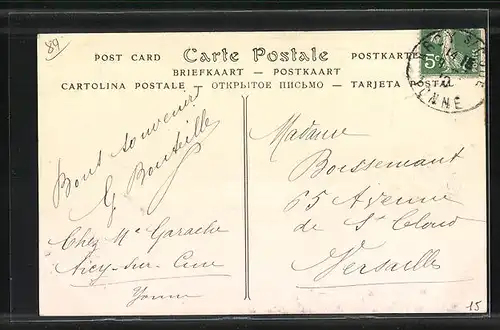 89
POST CARD Carte Postale POSTKARTE
BRIEFKAART — POSTKAART
CARTOLINA POSTALE — ОТКРЫТОЕ ПИСЬМО — TARJETA POSTAL
5c
YONNE
Bons souvenirs
G Bouteille
Chez Mr Garache
Yonne
Madame
Boissemant
65 Avenue
de St Cloud
Versailles
15